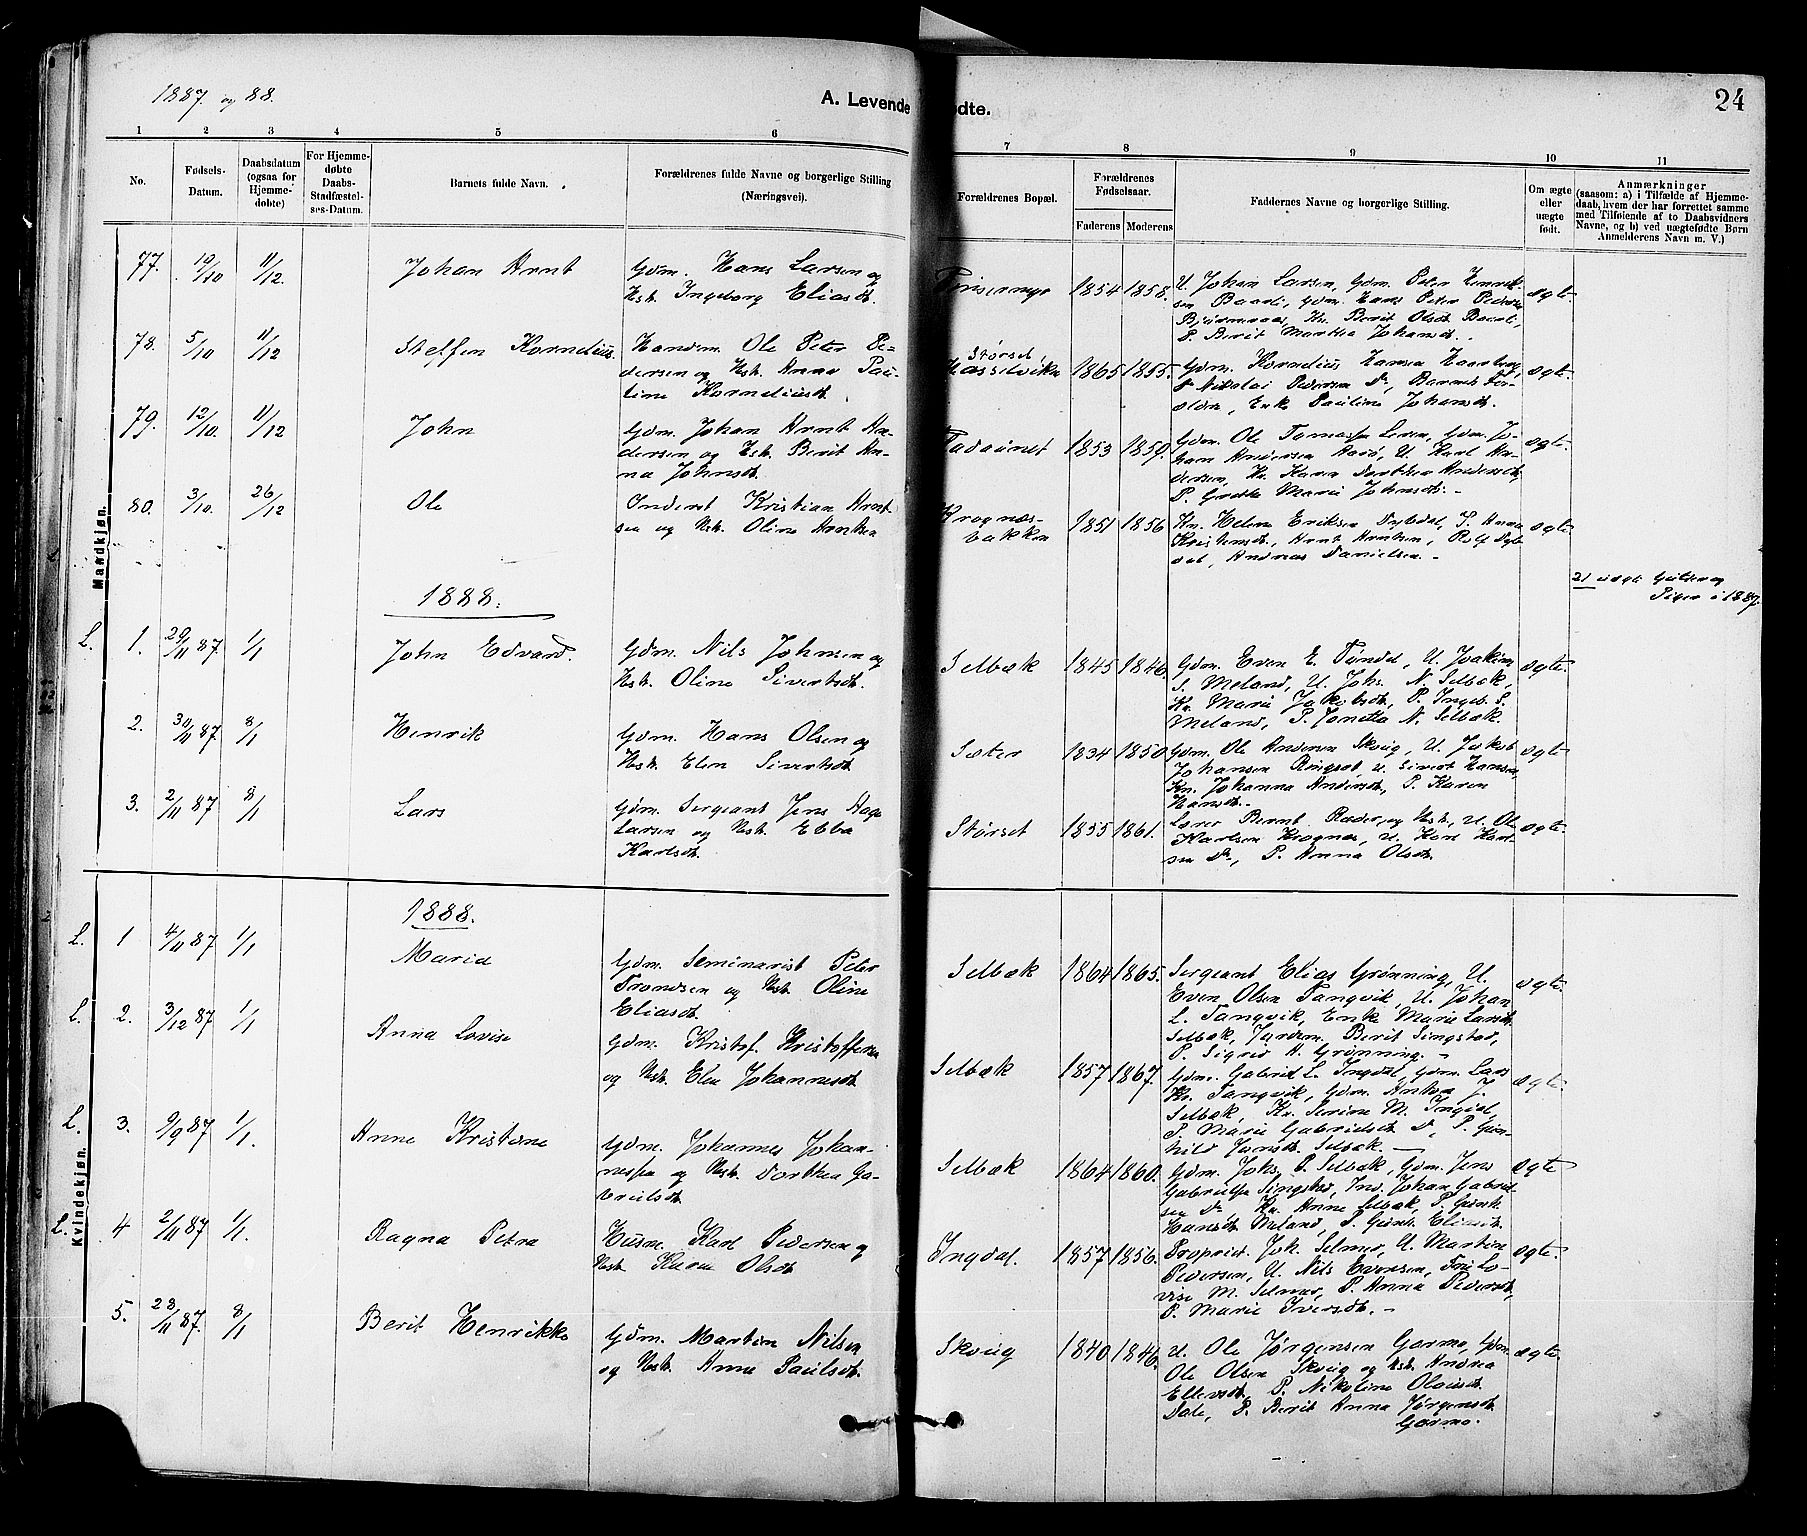 1887 og 88.
A. Levende
ødte.
24
1
2
3
4
5
6
7
8
9
10
11
No.
Fødsels-
Datum.
Daabsdatum
(ogsaa for
Hjemme-
døbte)
For Hjemme-
døbte
Daabs-
Stadfæstel-
ses-Datum.
Barnets fulde Navn.
Forældrenes fulde Navne og borgerlige Stilling
(Næringsvei).
Forældrenes Bopæl.
Forældrenes
Fødselsaar.
Faderens
Moderens
Faddernes Navne og borgerlige Stilling.
Om ægte
eller
uægte
født.
Anmærkninger
(saasom: a) i Tilfælde af Hjemme-
daab, hvem der har forrettet samme
med Tilføiende af to Daabsvidners
Navne, og b) ved uægtefødte Børn
Anmelderens Navn m. V.)
Mandkjøn.
77. 19/10 11/12 Johan Arnt
Gdm. Hans Larsen og
Hst. Ingeborg Eliasdt.
1854 1858.
U. Johan Larsen, Gdm. Peter Henrik-
sen Baadi, Gdm. Hans Peter Peders
Bjørnaas, Kv. Berit Olsdt. Baadi,
P. Berit Martha Johansdt.
ægte
78. 5/10 11/12 Steffen Kornelius.
Handm. Ole Peter Pe-
dersen og Hst. Anna Pau-
line Korneliusdt.
Størset
Hasselvika 1865 1855.
Gdm. Kornelius Hansen
Nikolai Pedersen Do, Barnets For-
ældre, Enke Pauline Johansdt.
ægte.
79. 12/10. 11/12 John
Gdm. Johan Arnt An-
dersen og Hst. Berit An-
na Johnsdt.
1853 1859.
Gdm. Ole Tomassen Leren, Gdm. Jo-
han Andersen Aasø, U. Karl An-
dersen, Kv. Karen Dorthea Andersdt,
P. Grethe Marie Johnsdt. -
ægte.
80. 3/10. 26/12 Ole
Inderst Kristian Arnt-
sen og Hst. Oline Arntsen
Krognæs-
bakken 1851 1856
Kv. Helene Eriksen Dybdal, P. Anna
Kristensdt., Arnt Arntsen, Rolf Dyb
dal, Andreas Danielsen. -
ægte.
21 uægte Gutter og
Piger i 1887.
1888.
L. 1. 29/11 87. 1/1 John Edvard.
Gdm. Nils Johnsen og
Hst. Oline Sivertsdt.
Selbæk 1845 1846.
Gdm. Even E. Tøndel, U. Joakim
S. Meland, U. Johs. N. Selbæk,
Kv. Marie Jakobsdt, P. Ingeb. S.
Meland, P. Janetta N. Selbæk.
ægte.
2. 30/11 87 8/1 Henrik
Gdm. Hans Olsen og
Hst. Elen Sivertsdt
Sæter 1834 1850.
Gdm. Ole Andersen Skevig, U. Jakob
Johansen Ringsæt, U. Sivert Hansen,
Kv. Johanna Andersdt, P. Karen
Hansdt.
ægte.
3. 2/11 87 8/1 Lars
Gdm. Sergeant Jens Aage
Larsen og Hst. Ebba
Karlsdt.
Størset 1855 1861.
Lærer Bernt Ræder, og Hst., U. Ole
Karlsen Krognæs, U. Karl Karl-
sen Do, P. Anna Olsdt.
ægte.
Kvindekjøn.
1888.
L. 1 4/11 87 1/1 Maria
Gdm. Seminarist Peter
Trondsen og Hst. Oline
Eliasdt.
Selbæk 1864 1865.
Sergeant Elias Grønning, U.
Even Olsen Tangvik, U. Johan
L. Tangvik, Enke Marie Larsdt.
Selbæk, Jordem. Berit Singstad,
P. Sigrid A. Grønning. -
ægte.
L. 2. 3/12 87 1/1 Anna Lovise
Gdm. Kristof. Kristoffersen
og Hst. Elen Johannesdt
Selbæk 1857 1867.
Gdm. Gabriel L. Ingdal, Gdm. Lars
Kr. Tangvik, Gdm. Anton J.
Selbæk, Kv. Serine M. Ingdal,
P. Marie Gabrielsdt Do, P. Gun-
hild Jonsdt. Selbæk. -
ægte.
L. 3. 9/9 87 1/1. Anne Kristine
Gdm. Johannes Johan-
nessen og Hst. Dorthea Ga-
brielsdt.
Selbæk 1864 1860.
Gdm. Johs. P. Selbæk, Gdm. Jens
Gabrielsen Singstad, Ind. Johan Gabriel-
sen Do, Kv. Anne Selbæk, P. Gunh.
Hansdt Meland, P. Gunh. Eliasdt.
ægte
L. 4 2/11 87 1/1. Ragna Petra
Husm. Karl Pedersen og
Hst. Karen Olsdt
Ingdal. 1857 1856.
Propriet. Joh. Selmer, U. Martin
Pedersen, U. Nils Evensen, Frk. Lo-
vise M. Selmer, P. Anna Pedersdt,
P. Marie Iversdt. -
ægte.
5. 28/11 87. 8/1 Berit Henrikke
Gdm. Martin Nilsen
og Hst. Anne Paulsdt.
Skevig 1840 1846.
U. Ole Jørgensen Garmo, Gdm.
Ole Olsen Skevig og Hst. Andrea
Ellevsdt, P. Nikoline Olausdt.
Dale, P. Berit Anna Jørgensdt
Garmo.
ægte.